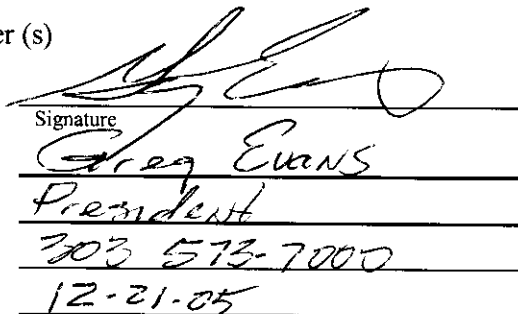 er (s)
Signature
Greg Evans
President
303 573-7000
12-21-05